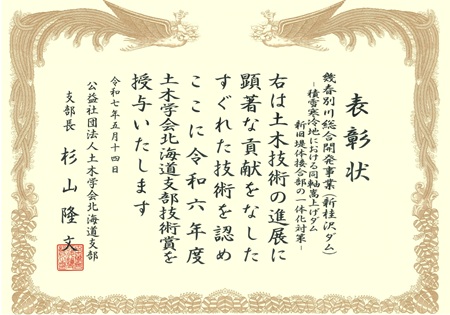 表彰状
幾春別川総合開発事業(新桂沢ダム)
-積雪寒冷地における同軸嵩上げダム
新旧堤体接合部の一体化対策-
右は土木技術の進展に
顕著な貢献をなした
すぐれた技術を認め
ここに令和六年度
土木学会北海道支部技術賞を
授与いたします
令和七年五月十四日
公益社団法人土木学会北海道支部
支部長 杉山隆文